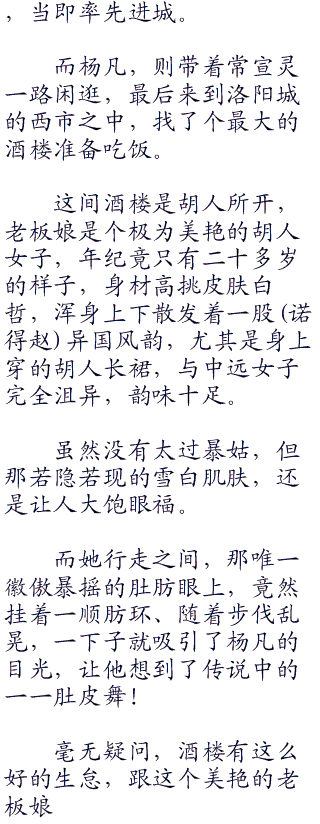 ，当即率先进城。
而杨凡，则带着常宣灵
一路闲逛，最后来到洛阳城
的西市之中，找了个最大的
酒楼准备吃饭。
这间酒楼是胡人所开，
老板娘是个极为美艳的胡人
女子，年纪竟只有二十多岁
的样子，身材高挑皮肤白
哲，浑身上下散发着一股(诺
得赵)异国风韵，尤其是身上
穿的胡人长裙，与中远女子
完全沮异，韵味十足。
虽然没有太过暴姑，但
那若隐若现的雪白肌肤，还
是让人大饱眼福。
而她行走之间，那唯一
徽傲暴摇的肚肪眼上，竟然
挂着一顺肪环、随着步伐乱
晃，一下子就吸引了杨凡的
目光，让他想到了传说中的
一一肚皮舞！
毫无疑问，酒楼有这么
好的生怠，跟这个美艳的老
板娘